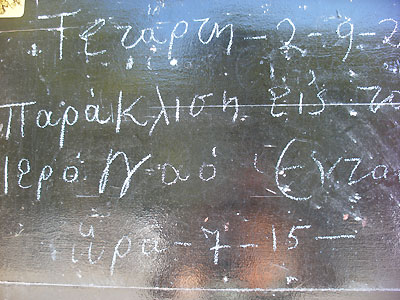 Τετάρτη - 2 - 9 - 2
παράκλιση εἰς το
Ιερό Ναό Εντα
ὥρα - 7 - 15 -